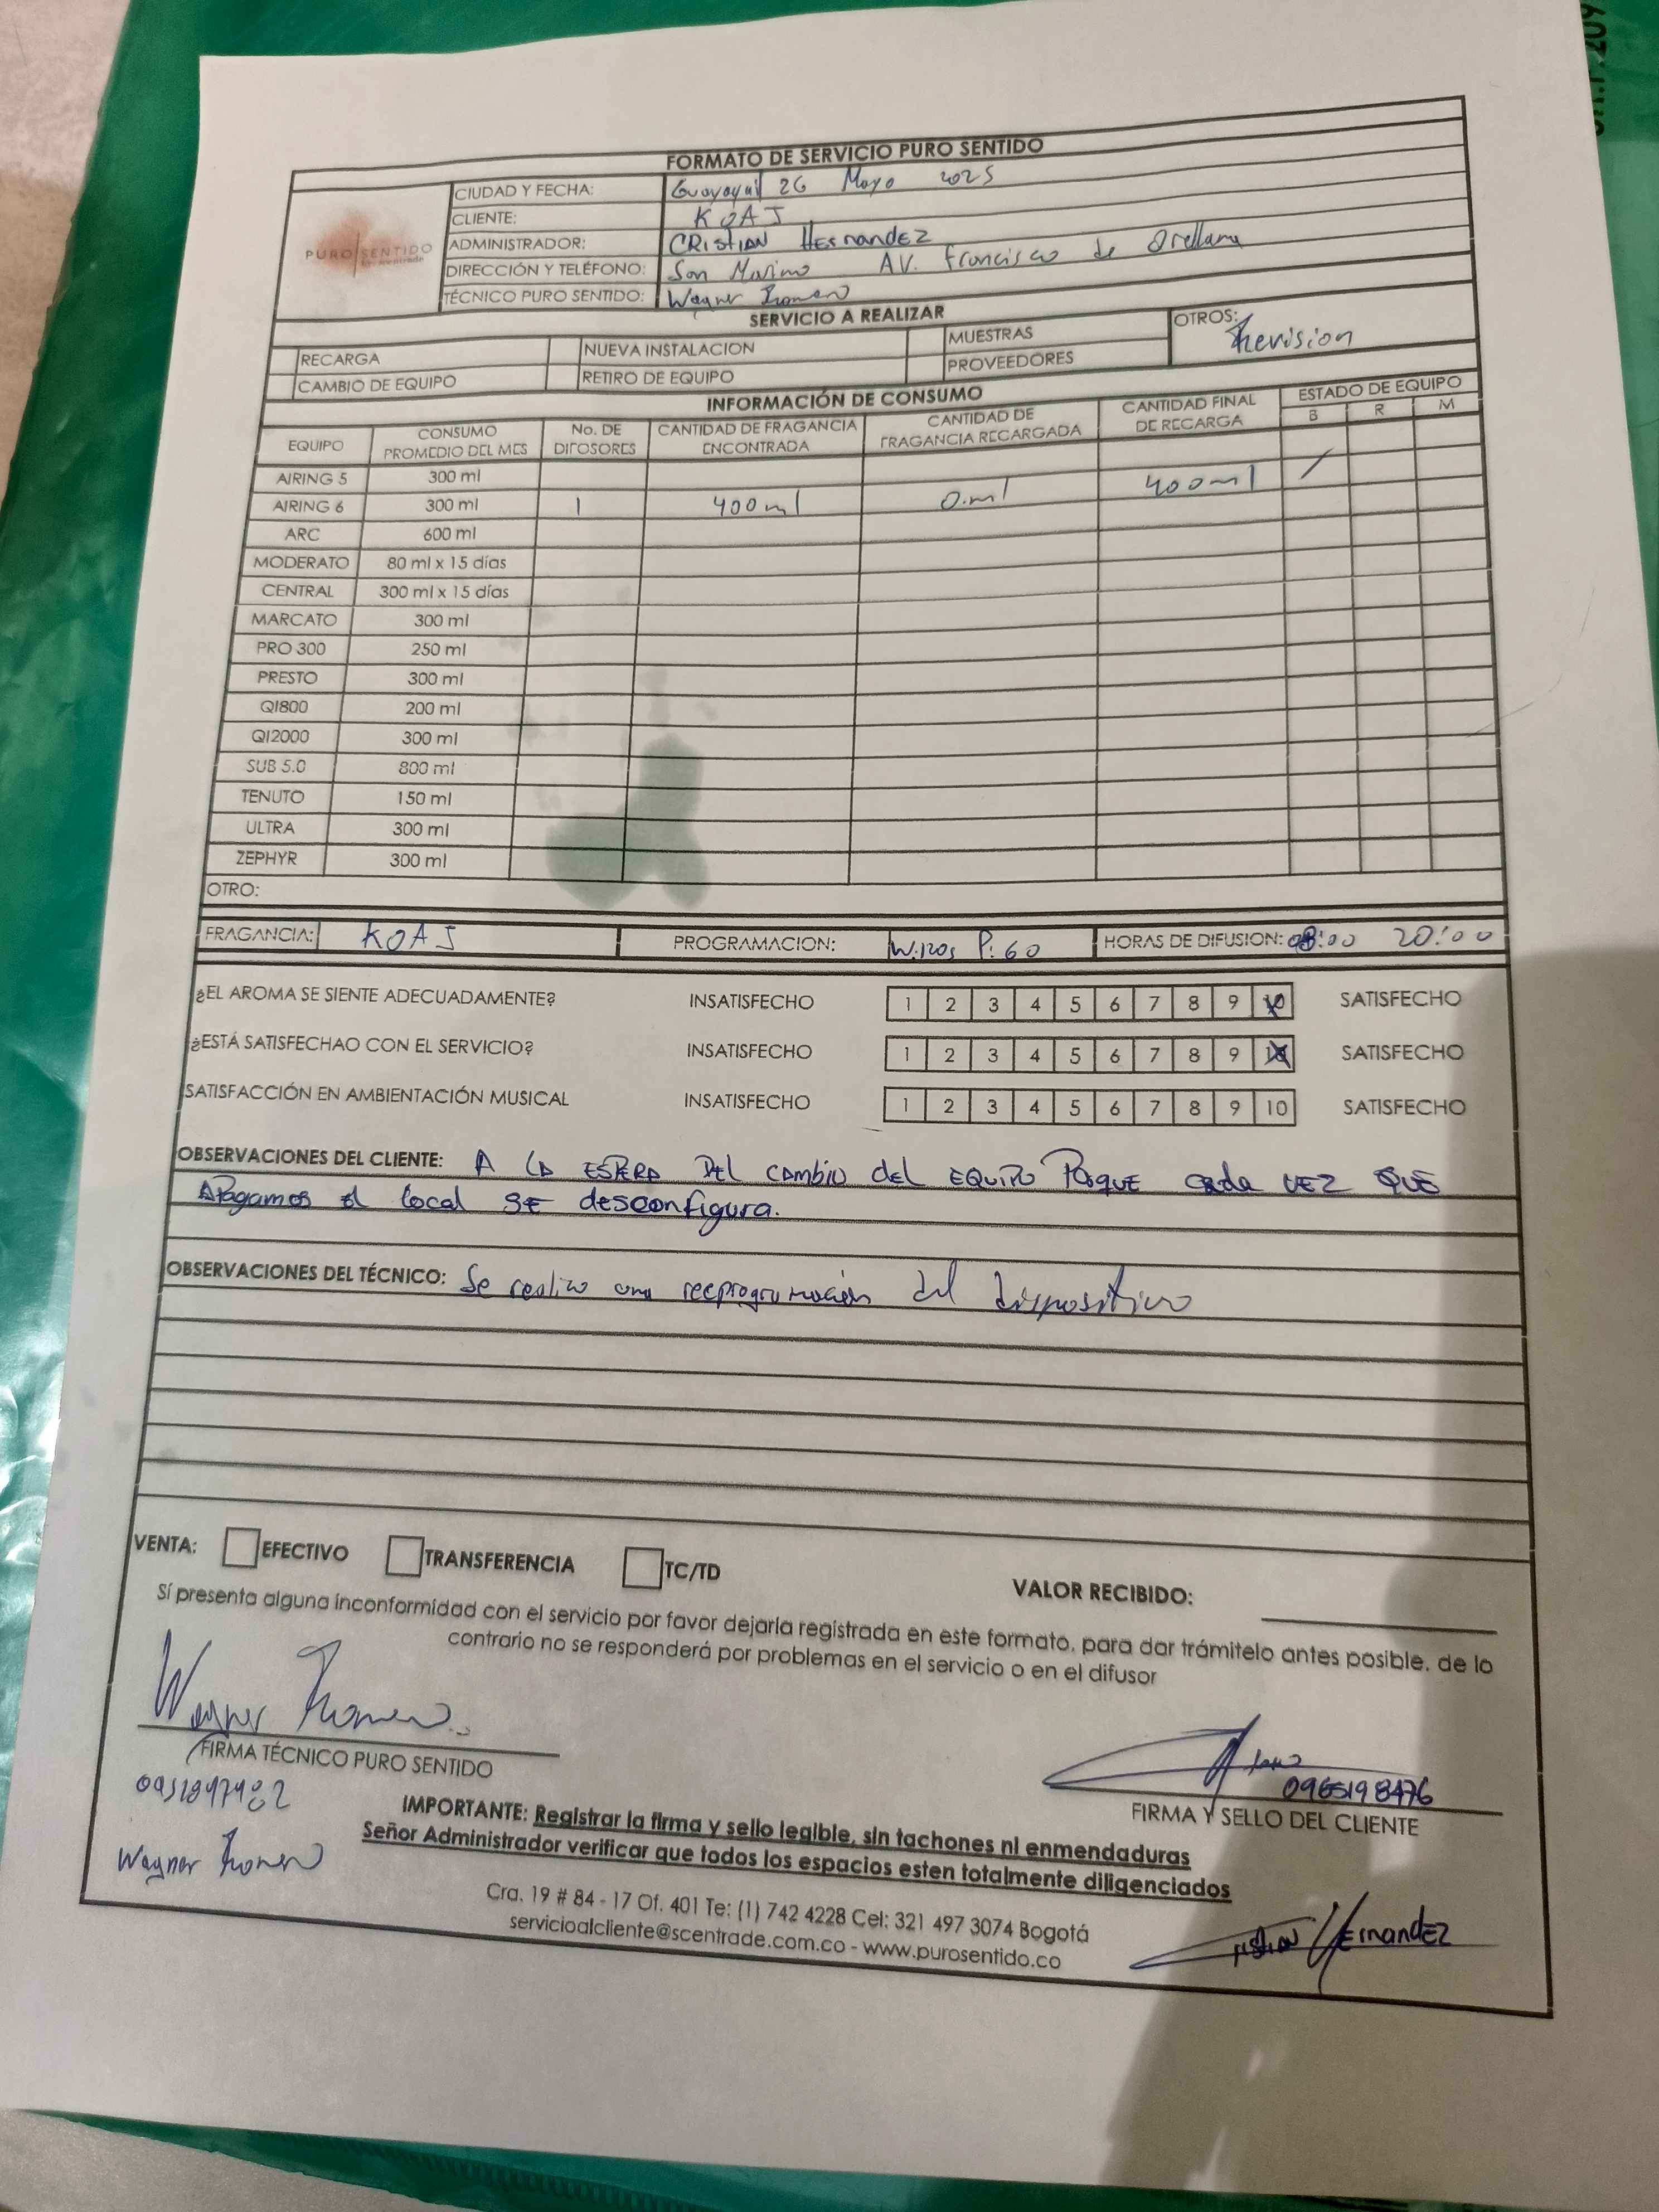 FORMATO DE SERVICIO PURO SENTIDO
PURO SENTIDO
CIUDAD Y FECHA: Guayaquil 26 Mayo 2025
CLIENTE: KOAJ
ADMINISTRADOR: CRistian HernandEZ
DIRECCIÓN Y TELÉFONO: San Marino AV. Francisco de Orellana
TÉCNICO PURO SENTIDO: Wagner Romero
SERVICIO A REALIZAR
RECARGA NUEVA INSTALACION MUESTRAS OTROS: Revision
CAMBIO DE EQUIPO RETIRO DE EQUIPO PROVEEDORES
INFORMACIÓN DE CONSUMO
EQUIPO CONSUMO PROMEDIO DEL MES No. DE DIFOSORES CANTIDAD DE FRAGANCIA ENCONTRADA CANTIDAD DE FRAGANCIA RECARGADA CANTIDAD FINAL DE RECARGA ESTADO DE EQUIPO B R M
AIRING 5 300 ml
AIRING 6 300 ml 1 400ml 0.ml 400ml /
ARC 600 ml
MODERATO 80 ml x 15 días
CENTRAL 300 ml x 15 días
MARCATO 300 ml
PRO 300 250 ml
PRESTO 300 ml
QI800 200 ml
QI2000 300 ml
SUB 5.0 800 ml
TENUTO 150 ml
ULTRA 300 ml
ZEPHYR 300 ml
OTRO:
FRAGANCIA: KOAJ PROGRAMACION: W:120s P:60 HORAS DE DIFUSION: 08:00 20:00
¿EL AROMA SE SIENTE ADECUADAMENTE? INSATISFECHO 1 2 3 4 5 6 7 8 9 10 SATISFECHO
¿ESTÁ SATISFECHAO CON EL SERVICIO? INSATISFECHO 1 2 3 4 5 6 7 8 9 10 SATISFECHO
SATISFACCIÓN EN AMBIENTACIÓN MUSICAL INSATISFECHO 1 2 3 4 5 6 7 8 9 10 SATISFECHO
OBSERVACIONES DEL CLIENTE: A LA ESPERA DEL cambio dEL EQUIPO PorquE cada VEZ QUE
Apagamos el local SE desconfigura.
OBSERVACIONES DEL TÉCNICO: Se realizo una reeprogramación del dispositivo
VENTA: EFECTIVO TRANSFERENCIA TC/TD VALOR RECIBIDO:
Sí presenta alguna inconformidad con el servicio por favor dejarla registrada en este formato, para dar trámitelo antes posible, de lo
contrario no se responderá por problemas en el servicio o en el difusor
Wagner Romero
FIRMA TÉCNICO PURO SENTIDO
0965198476
FIRMA Y SELLO DEL CLIENTE
Wagner Romero
IMPORTANTE: Registrar la firma y sello legible, sin tachones ni enmendaduras
Señor Administrador verificar que todos los espacios esten totalmente diligenciados
Cra. 19 # 84 - 17 Of. 401 Te: (1) 742 4228 Cel: 321 497 3074 Bogotá
servicioalcliente@scentrade.com.co - www.purosentido.co
Cristian HErnandEZ